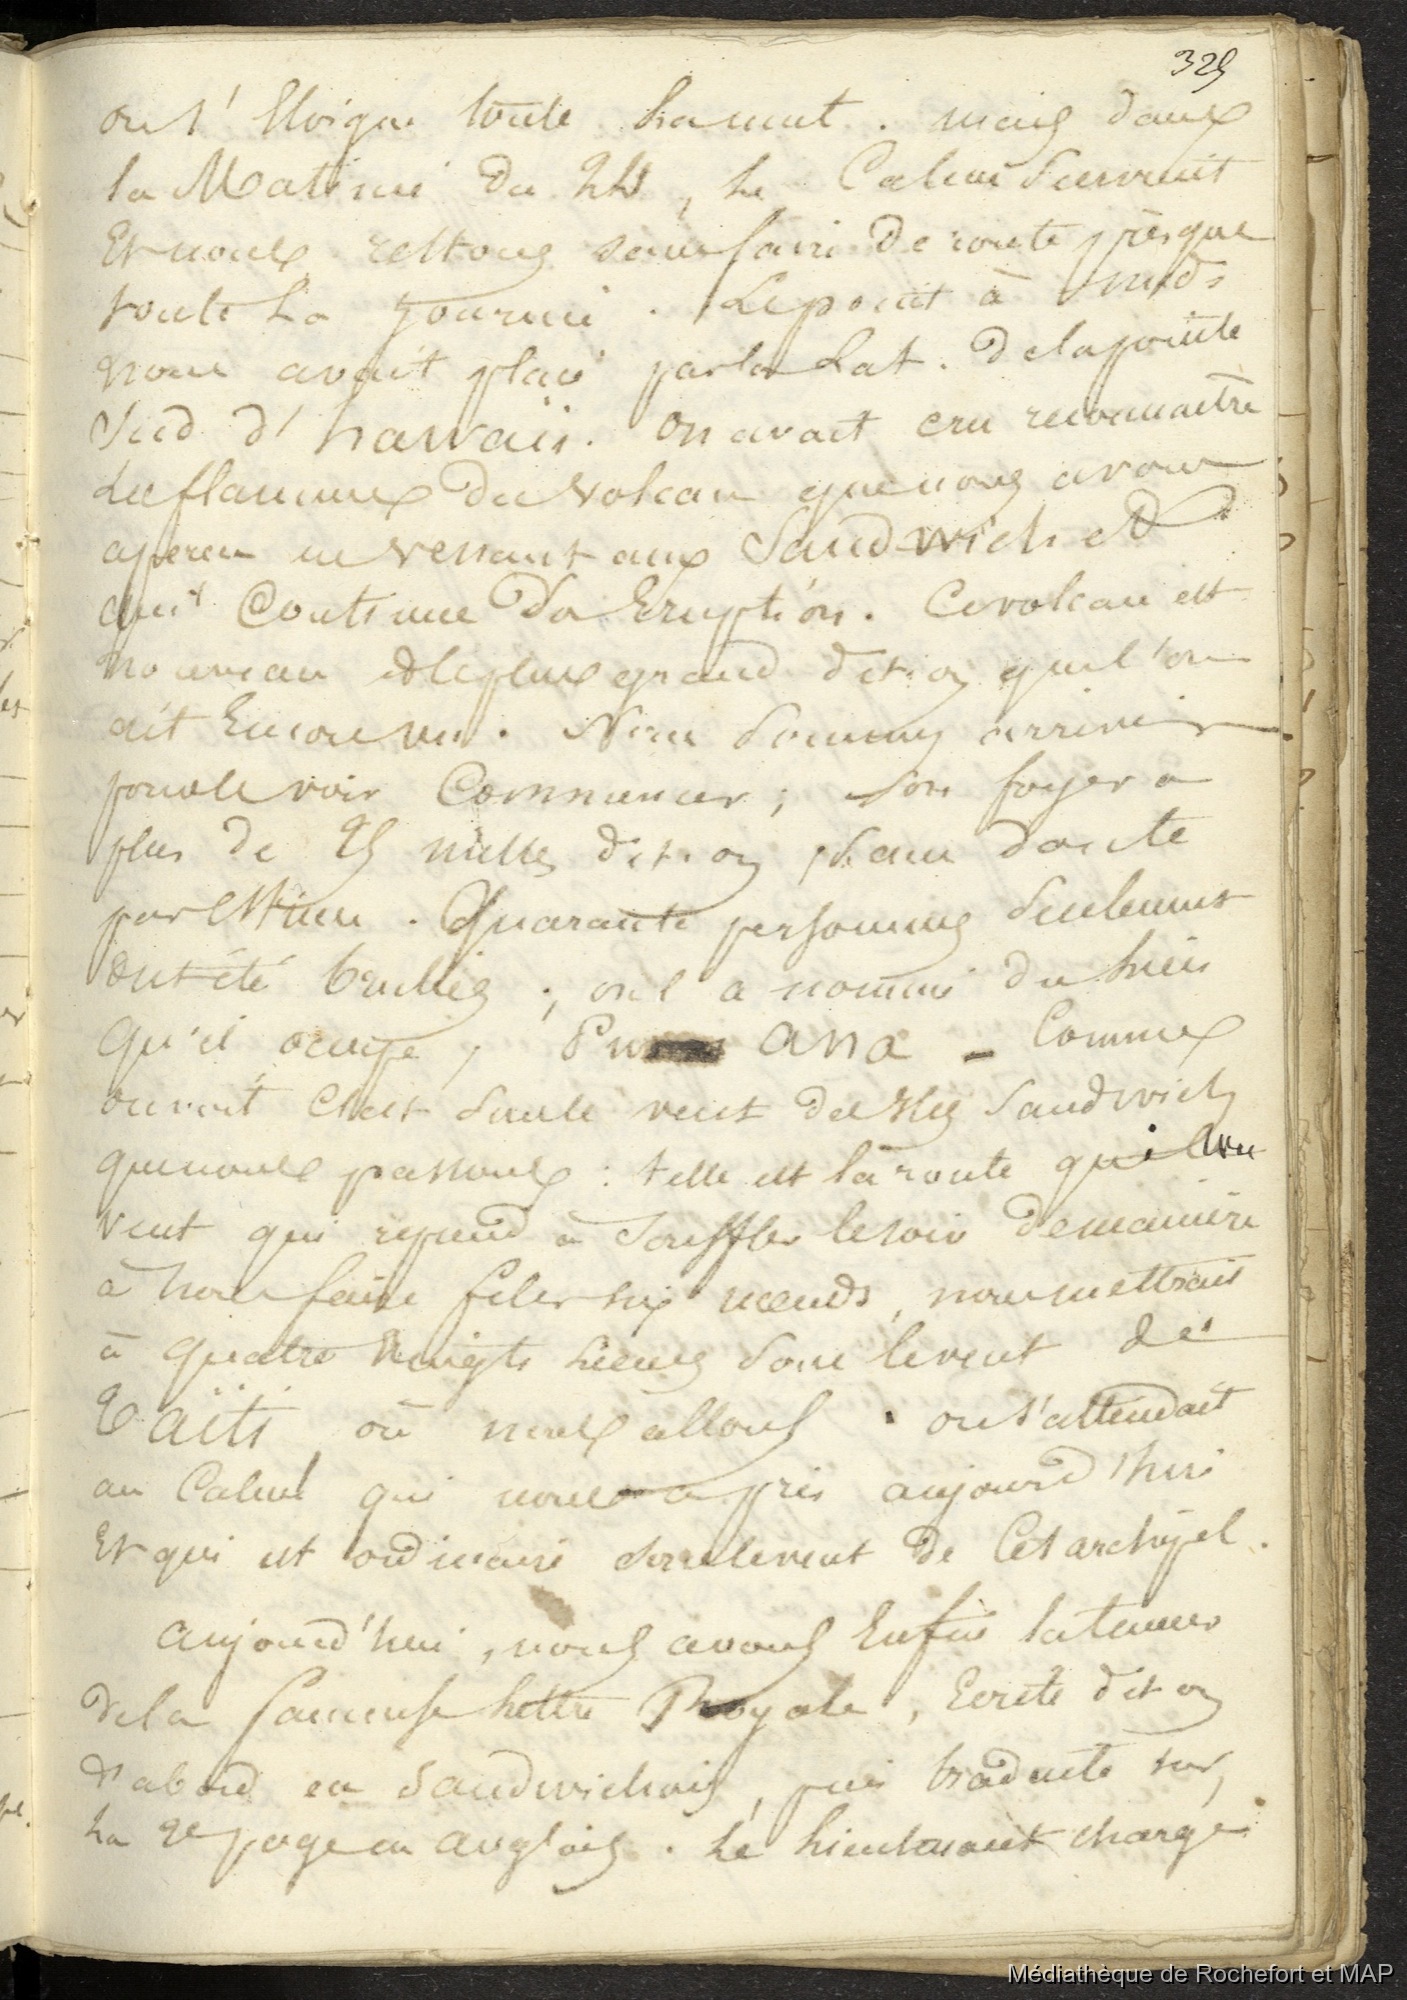 325
on s'éloigne toute la nuit. mais dans
la Matinée du 24, le Calme Survient
Et nous restons sans faire de route presque
toute la journée. Le point à midi
nous avait placé par la Lat. de la pointe
Sud d'hawaii. On avait cru reconnaitre
Les flammes du volcan que nous avons
aperçu en venant aux Sandwich et
qui Continue Son Eruption. Ce volcan est
nouveau et le plus grand dit-on que l'on
ait Encore vu. Nous Sommes arrivés
pour le voir Commencer; Son foyer a
plus de 25 milles dit-on, Sans doute
par Estime. Quarante personnes Seulement
ont été brulées; on l'a nommé du lieu
Qu'il occupe, Pu ana - Comme
on voit C'est Sous le vent des Iles Sandwich
que nous passons: telle est la route que le
vent qui reprend à Souffler le soir de manière
à nous faire filer six nœuds, nous mettrait
à quatre vingts lieues Sous le vent de
Taïti où nous allons. on s'attendait
au Calme qui nous a pris aujourd'hui
Et qui est ordinaire sous le vent de Cet archipel.
Aujourd'hui, nous avons Enfin la teneur
de la fameuse lettre Royale, Ecrite dit on
d'abord en Sandwichois, puis traduite sur
la 2e page en anglais. Le Lieutenant chargé
Médiathèque de Rochefort et MAP